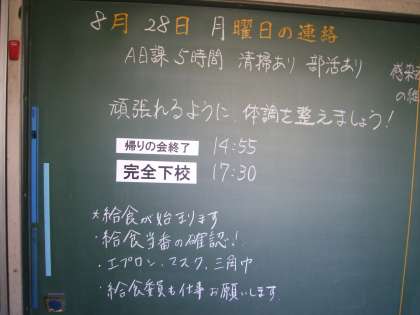 8月 28日 月曜日の連絡
A日課 5時間 清掃あり 部活あり
頑張れるように、体調を整えましょう!
帰りの会終了 14:55
完全下校 17:30
*給食が始まります
・給食当番の確認!
・エプロン、マスク、三角巾
・給食委員も仕事お願いします。
感染
の細